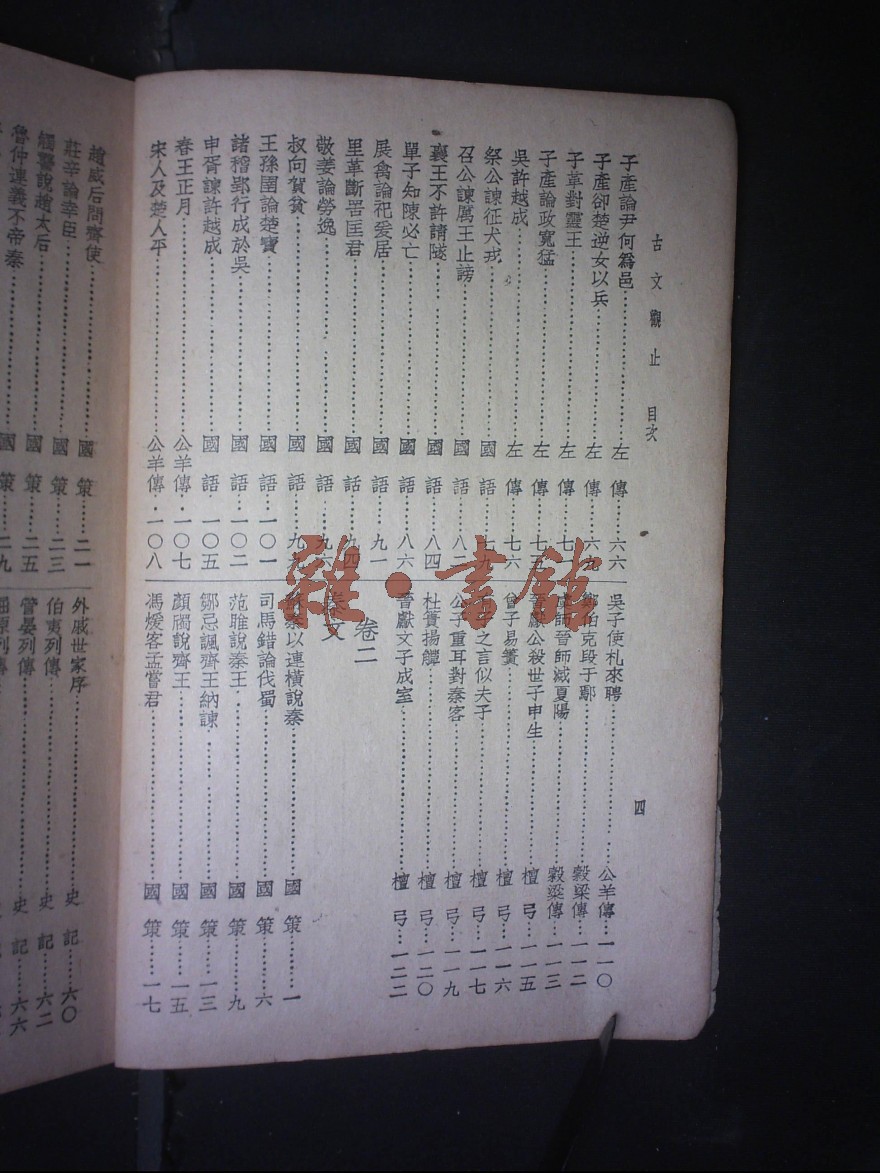 古文觀止 目次
四
子產論尹何爲邑……左傳……六六
子產卻楚逆女以兵……左傳……六九
子革對靈王……左傳……七一
子產論政寬猛……左傳……七五
吳許越成……左傳……七六
祭公諫征犬戎……國語……七九
召公諫厲王止謗……國語……八二
襄王不許請隧……國語……八四
單子知陳必亡……國語……八六
展禽論祀爰居……國語……九一
里革斷罟匡君……國語……九四
敬姜論勞逸……國語……九六
叔向賀貧……國語……九九
王孫圉論楚寶……國語……一〇一
諸稽郢行成於吳……國語……一〇二
申胥諫許越成……國語……一〇五
春王正月……公羊傳……一〇七
宋人及楚人平……公羊傳……一〇八
吳子使札來聘……公羊傳……一一〇
鄭伯克段于鄢……穀梁傳……一一二
虞師晉師滅夏陽……穀梁傳……一一三
晉獻公殺世子申生……檀弓……一一五
曾子易簀……檀弓……一一六
有子之言似夫子……檀弓……一一七
公子重耳對秦客……檀弓……一一九
杜蕢揚觶……檀弓……一二〇
晉獻文子成室……檀弓……一二二
卷二
秦文
蘇秦以連橫說秦……國策……一
司馬錯論伐蜀……國策……六
范雎說秦王……國策……九
鄒忌諷齊王納諫……國策……一三
顏斶說齊王……國策……一五
馮煖客孟嘗君……國策……一七
趙威后問齊使……國策……二一
莊辛論幸臣……國策……二三
觸讋說趙太后……國策……二五
魯仲連義不帝秦……國策……二九
外戚世家序……史記……六〇
伯夷列傳……史記……六二
管晏列傳……史記……六六
屈原列傳
雜·書館